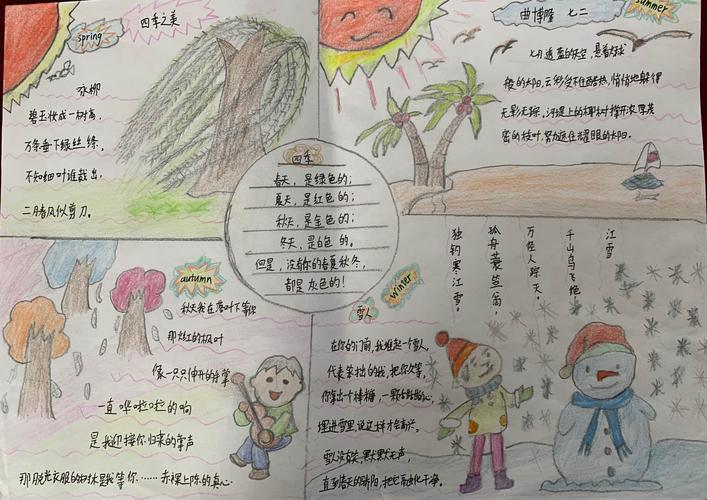 四季之美
spring
咏柳
碧玉妆成一树高，
万条垂下绿丝绦。
不知细叶谁裁出，
二月春风似剪刀。
曲博隆 七二
summer
七月透蓝的天空，悬着火球
般的太阳，云彩受不住酷热，悄悄地躲得
无影无踪，河堤上的椰树撑开浓厚茂
密的枝叶，努力遮住耀眼的太阳。
四季
春天，是绿色的；
夏天，是红色的；
秋天，是金色的；
冬天，是白色的。
但是，没有你的春夏秋冬，
都是灰色的！
autumn
秋天我在落叶下等你
那火红的枫叶
像一只只伸开的手掌
一直哗啦啦的响
是我迎接你归来的掌声
那脱光衣服的树林里我等你……赤裸上陈的真心
winter
雪人
在你的门前，我堆起一个雪人，
代表笨拙的我，把你久等，
你拿出一个棒糖，一颗甜甜的心，
埋进雪里，说这样才会高兴。
雪人没有笑，默默无声，
直到春天的骄阳，把它融化干净。
江雪
千山鸟飞绝，
万径人踪灭。
孤舟蓑笠翁，
独钓寒江雪。